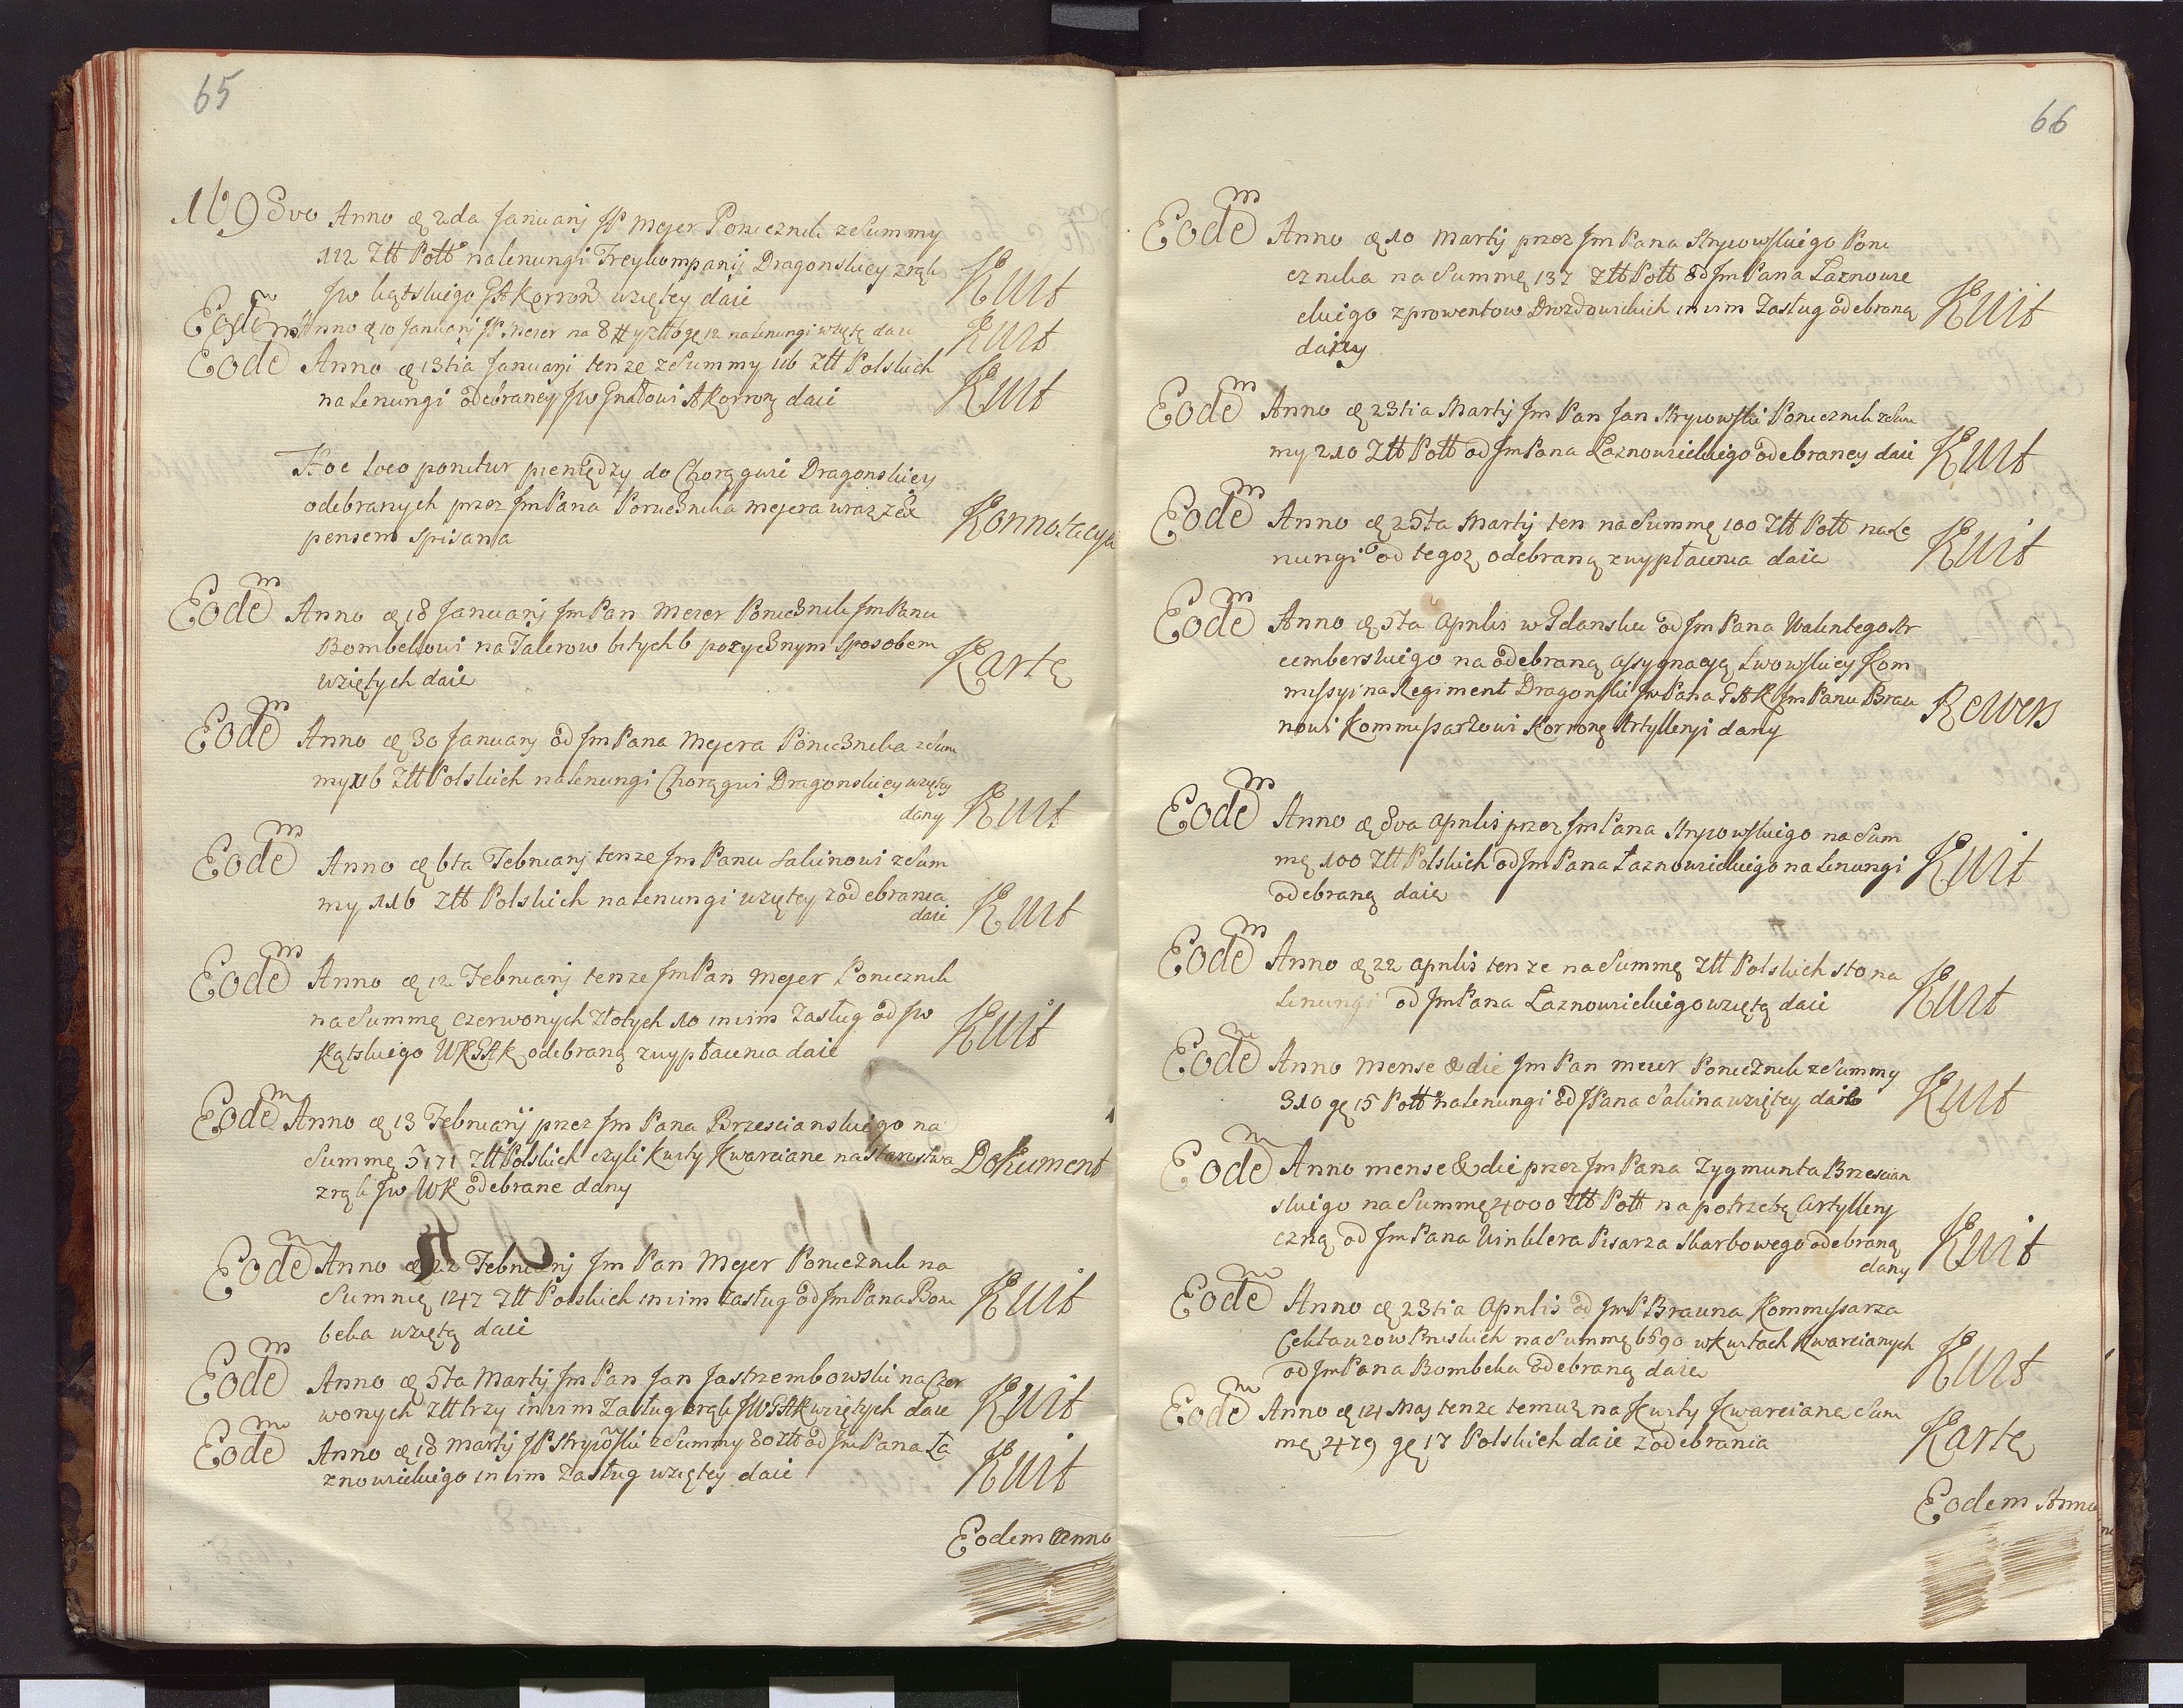 65
169 8vo Anno & 2da Januarij JP Mejer Porucznik z Summy
112 Złł Poll na lenungi Freykompanij Dragonskiey z rąk
Jw Kątskiego GAKorron wziętey daie Kwit
Eodem Anno & 10 Januarij JP Meier na 8 # y złło gr 12 na lenungi wziętę daie Kwit
Eode Anno & 13tia Januarij tenze z Summy 116 Złł Polskich
na lenungi odebraney Jw Gnałowi AKorrony daie Kwit
Hoc loco ponitur pieniędzy do Chorągwie Dragonskiey
odebranych przez Jm Pana Porucznika mejera wraz z Ex
pensem spisana Konnotacya
Eodem Anno & 18 Januarij Jm Pan Meier Porucznik Jm Panu
Bombekowi na Talerow bitych 6 pozycznym sposobem
wziętych daie Kartę
Eodem Anno & 30 Januarij od Jm Pana Mejera Porucznika z Sum
my 116 Złł Polskich na lenungi Chorągwi Dragonskiey wziętey
dany Kwit
Eodem Anno & 6ta Februarij tenze Jm Panu Sakinowi z Sum
my 116 Złł Polskich na lenungi wziętey z odebrania
daie Kwit
Eodem Anno & 12 Februarij tenze Jm Pan Mejer Porucznik
na Summę czerwonych złotych 10 in vim Zasług od Jw
Kątskiego WKGAK odebraną z wypłacenia daie Kwit
Eodem Anno & 13 Februarij przez Jm Pana Brzescianskiego na
Summę 5171 Złł Polskich czyli kwity Kwarciane na starostwa
z rąk Jw WK odebrane dany Dokument
Eodem Anno & 22 Februarij Jm Pan Mejer Porucznik na
Summę 1247 Złł Polskich in vim Zasług od Jm Pana Bom
beka wziętą daie Kwit
Eodem Anno & 5ta Martij Jm Pan Jan Jastrzembowski na Czer
wonych Złł trzy in vim Zasług z rąk JWGAK wziętych daie Kwit
Eodem Anno & 18 Martij JP Strycowski z Summy 80 złł od Jm Pana Ła
znowickiego in vim Zasług wziętey daie Kwit
Eodem Anno
66
Eodem Anno & 10 Martij przez Jm Pana Strycowskiego Poru
cznika na Summę 137 Złł Poll od Jm Pana Laznowie
ckiego z prowentow Drozdowickich in vim Zasług odebraną
dany Kwit
Eodem Anno & 23tia Martij Jm Pan Jan Strycowski Porucznik z Sum
my 210 Złł Poll od Jm Pana Laznowieckiego odebraney daie Kwit
Eodem Anno & 25ta Martij ten na Summę 100 Złł Poll na Le
nungi od tegoż odebraną z wypłacenia daie Kwit
Eodem Anno & 5ta Aprilis w Gdansku od Jm Pana Walentego Str
cembeskiego na odebraną Assygnacyą Lwowskiey Kom
missyi na Regiment Dragonski Jw Pana GAK Jm Panu Brau
nowi Kommissarzowi Korronę Artylleryi dany Rewers
Eodem Anno & 8va Aprilis przez Jm Pana Strycowskiego na Sum
mę 100 Złł Polskich od Jm Pana Łaznowieckiego na lenungi
odebraną daie Kwit
Eodem Anno & 22 Aprilis tenze na Summę Złł Polskich sto na
lenungi od Jm Pana Laznowieckiego wziętą daie Kwit
Eodem Anno Mense & die Jm Pan Meier Porucznik z Summy
310 gr 15 Poll na lenungi od JPana Sakina wziętey daie Kwit
Eodem Anno mense & die przez Jm Pana Zygmunta Brzescian
skiego na Summę 4000 Złł Poll na potrzebę Artyllery
czną od Jm Pana Winklera Pisarza Skarbowego odebraną
dany Kwit
Eodem Anno & 23tia Aprilis od Jm P Brauna Kommissarza
Cektauzow Pruskich na Summę 6590 w kwitach Kwarcianych
od Jm Pana Bombeka odebraną daie Kwit
Eodem Anno & 14 Maj tenze temuż na Kwity Kwarciane Sum
mę 2479 gr 17 Polskich daie z odebrania Kartę
Eodem Anno